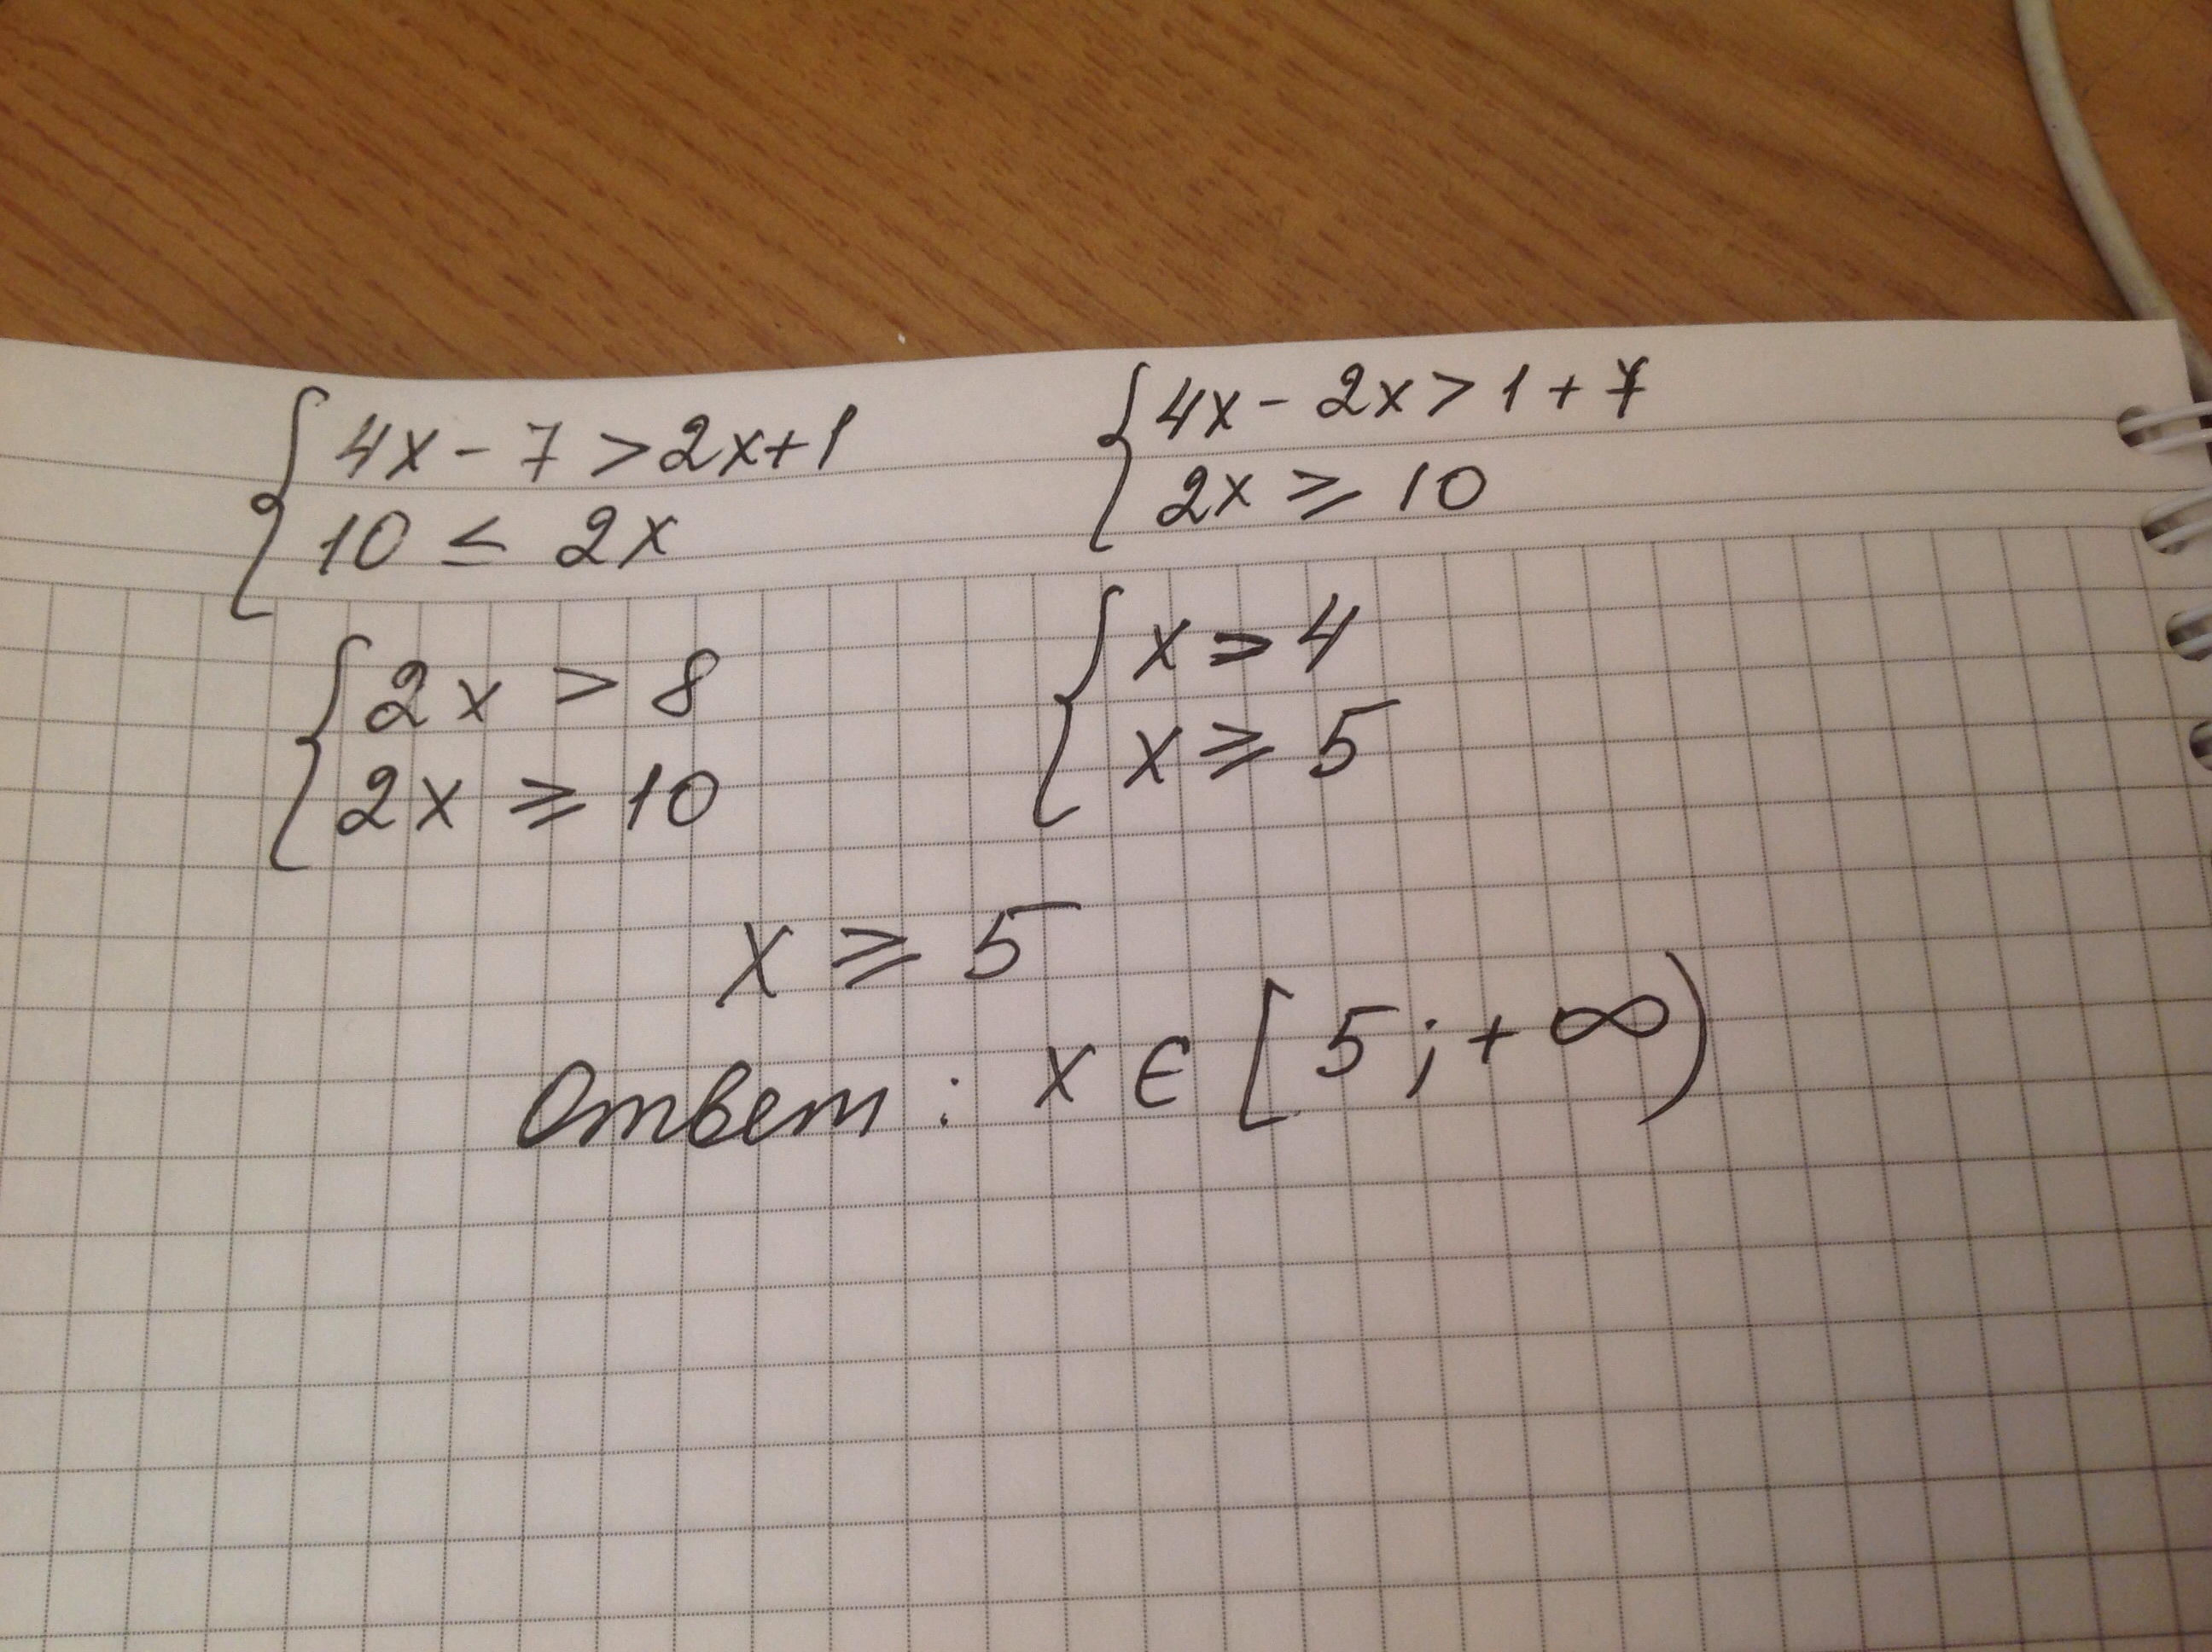 4x - 7 > 2x + 1
10 ≤ 2x
4x - 2x > 1 + 7
2x ≥ 10
2x > 8
2x ≥ 10
x > 4
x ≥ 5
x ≥ 5
Ответ : x ∈ [5 ; + ∞)